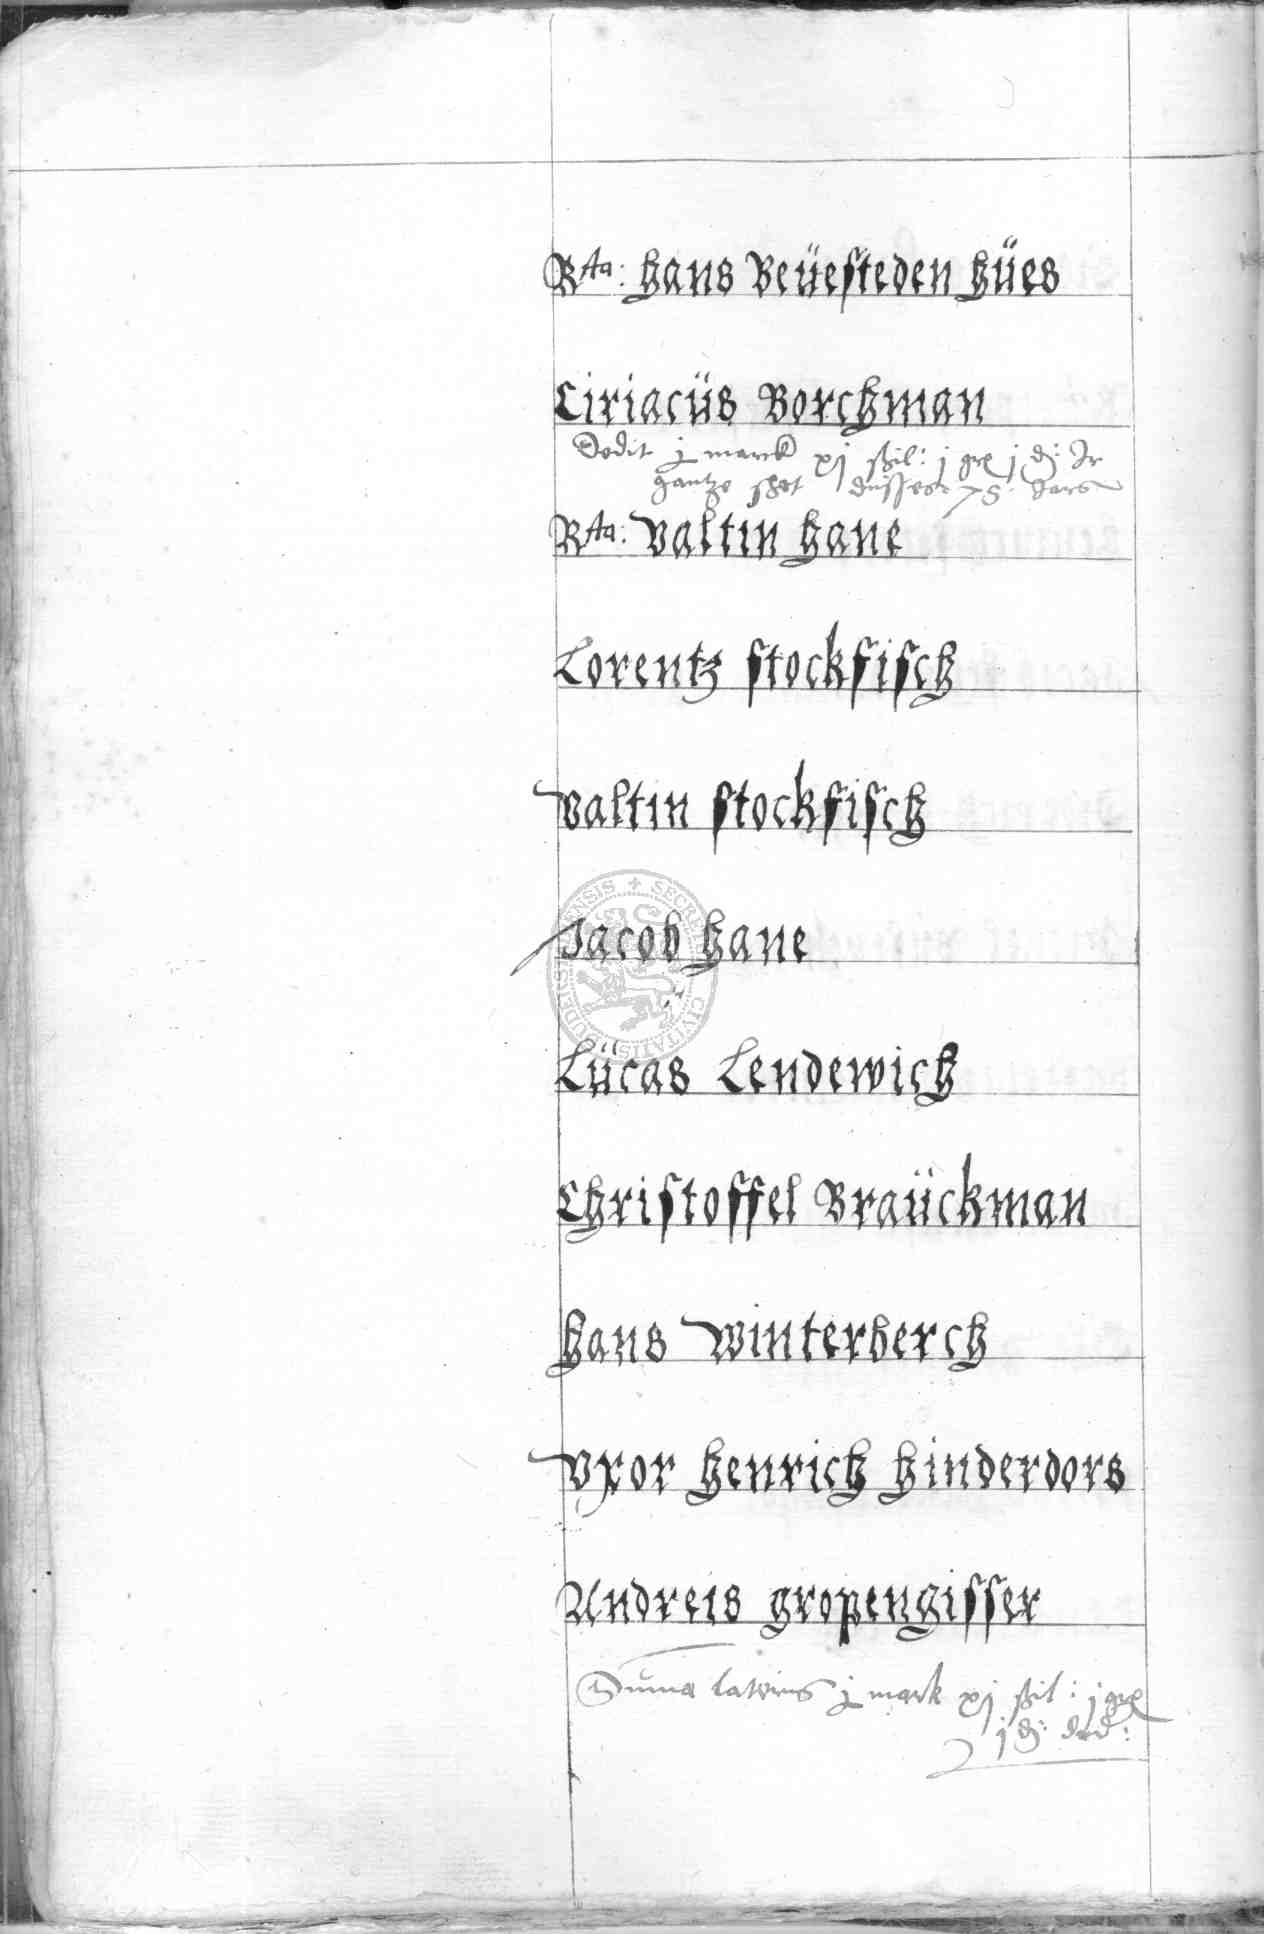 Rta: Hans Beüesteden Hües
Ciriacüs Borchman
Dedit j marck xj ßhil: j gr j d: Ir
gantze schot dusses 78 Jars
Rta: Valtin Hane
Lorentz Stockfisch
Valtin Stockfisch
Jacob Hane
Lücas Lendewich
Christoffel Braückman
Hans Winterberch
Vxor Henrich Hinderdors
Andreis gropengisser
Suma lateris j mark xj ßhil: j gr
j d: ded: